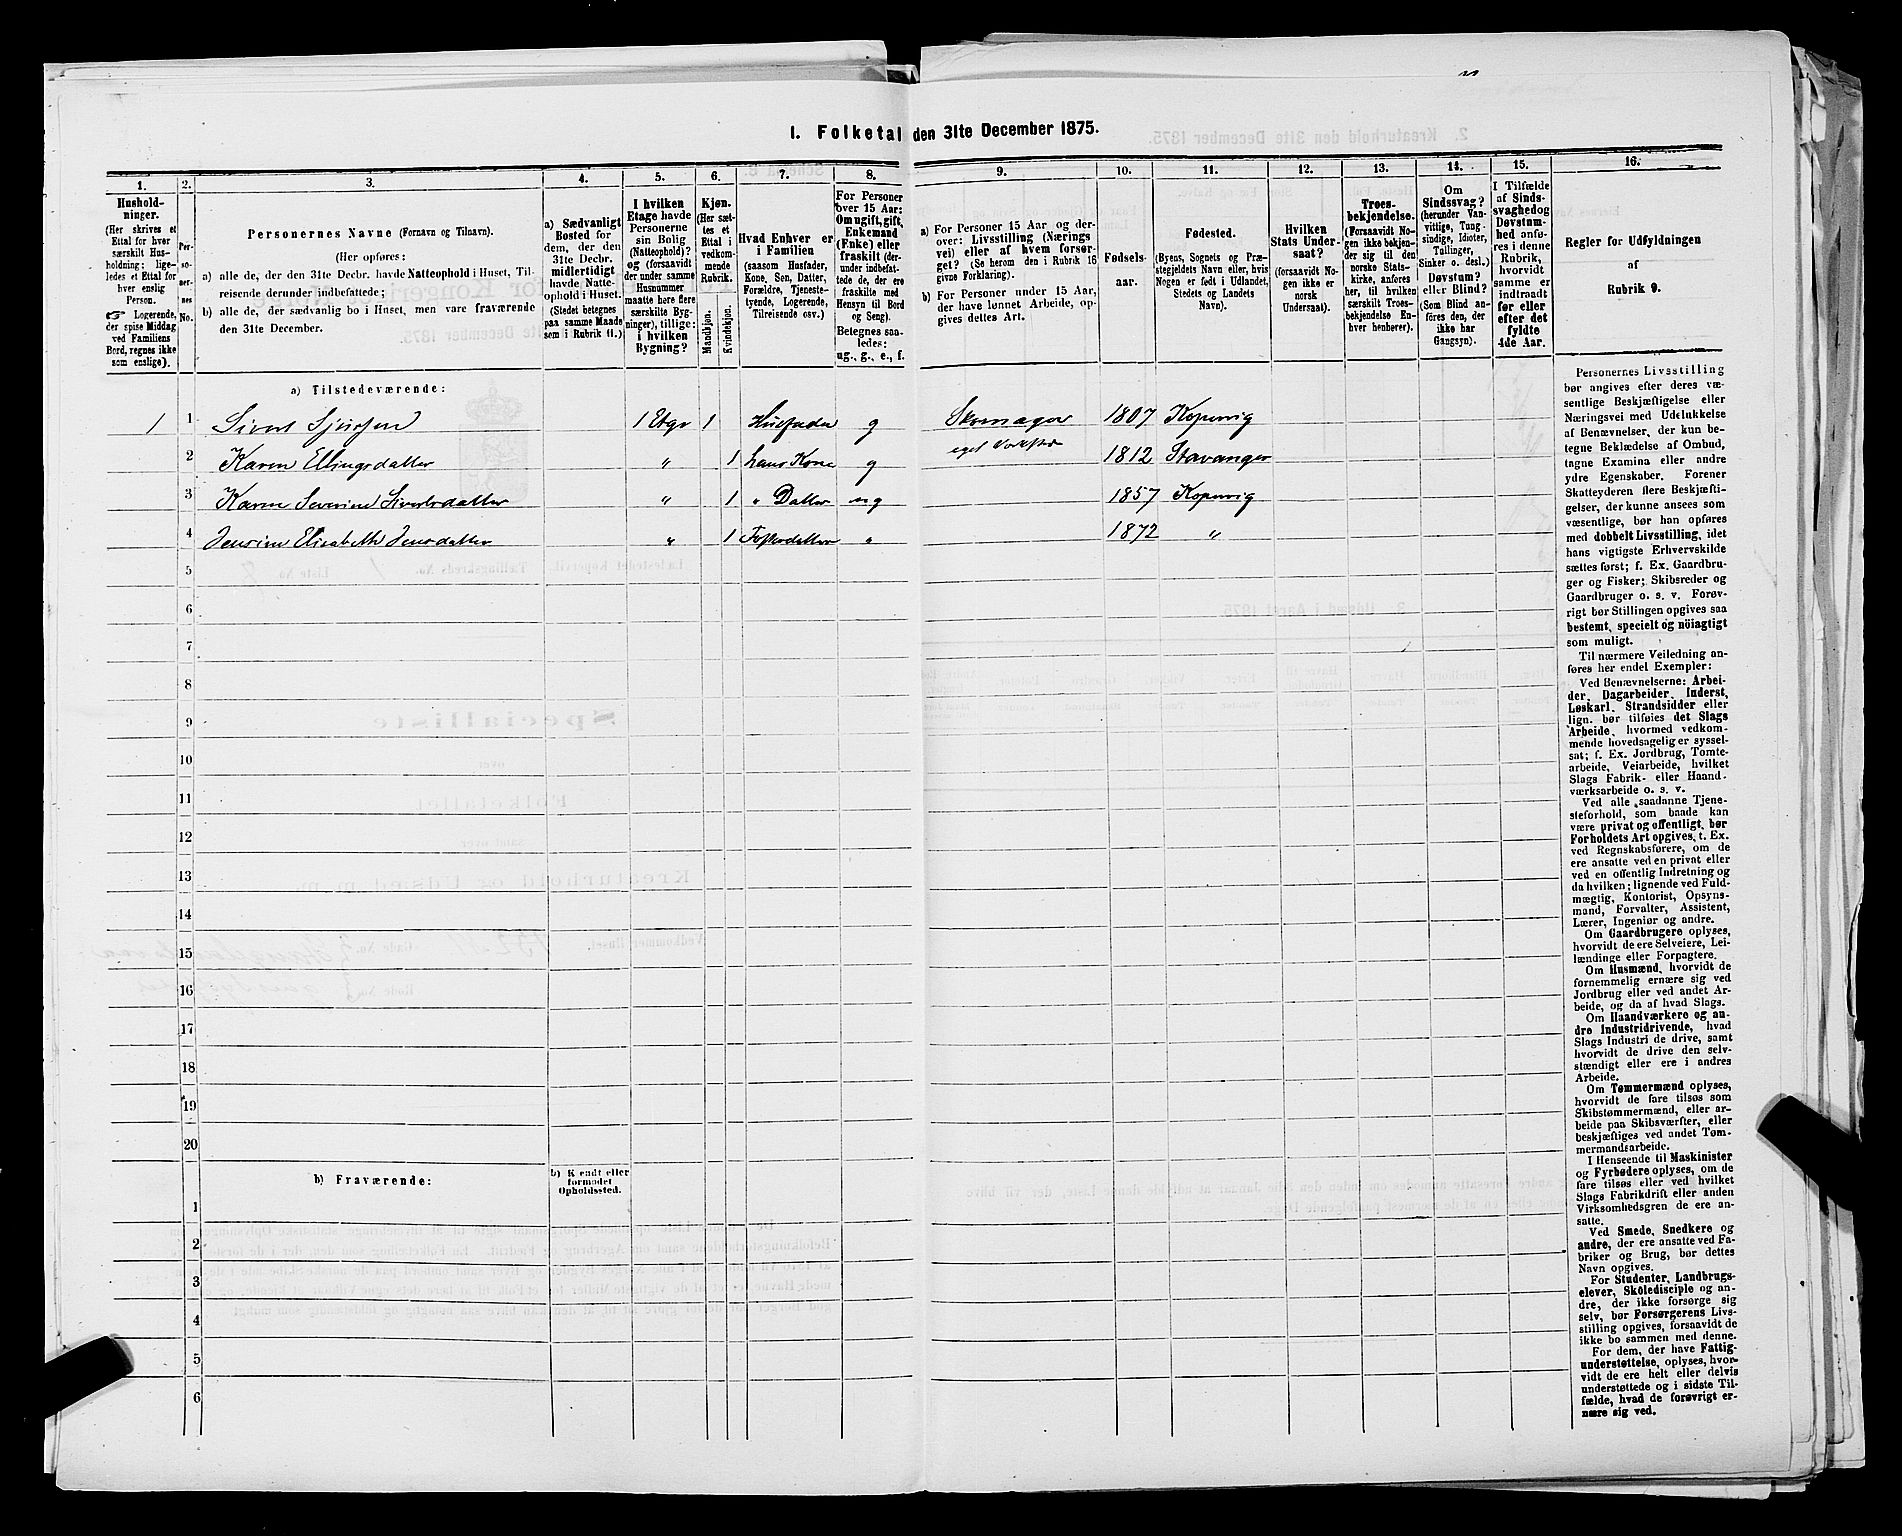 1. Folketal den 31te December 1875.
1. 2. 3. 4. 5. 6. 7. 8. 9. 10. 11. 12. 13. 14. 15. 16.
Hushold-
ninger.
(Her skrives et
Ettal for hver
særskilt Hus-
holdning; lige-
ledes et Ettal
for hver enslig
Person.
☞ Logerende,
der spise Middag
ved Familiens
Bord, regnes ikke
som enslige).
Per-
so-
ner-
nes
No.
Personernes Navne (Fornavn og Tilnavn).
(Her opføres:
a) alle de, der den 31te Decbr. havde Natteophold i Huset, Til-
reisende derunder indbefattede;
b) alle de, der sædvanlig bo i Huset, men vare fraværende
den 31te December.
a) Sædvanligt
Bosted for
dem, der den
31te Decbr.
midlertidigt
havde Natte-
ophold i Huset.
(Stedet betegnes
paa samme Maade
som i Rubrik 11.)
I hvilken
Etage havde
Personerne
sin Bolig
(Natteophold)?
og (forsaavidt
der under samme
Husnummer
maatte høre flere
særskilte Byg-
ninger), tillige:
i hvilken
Bygning?
Kjøn.
(Her sæt-
tes et
Ettal i
vedkom-
mende
Rubrik.
Mandkjøn.
Kvindekjøn.
Hvad Enhver er
i Familien
(saasom Husfader,
Kone, Søn, Datter,
Forældre, Tjeneste-
tyende, Logerende,
Tilreisende osv.)
For Personer
over 15 Aar:
Om ugift, gift,
Enkemand
(Enke) eller
fraskilt (der-
under indbefat-
tede de, der ere
fraskilte med
Hensyn til Bord
og Seng).
Betegnes saa-
ledes:
ug., g., e., f.
a) For Personer 15 Aar og der-
over: Livsstilling (Nærings
vei) eller af hvem forsør-
get? (Se herom den i Rubrik 16
givne Forklaring).
b) For Personer under 15 Aar,
der have lønnet Arbeide, op-
gives dettes Art.
Fødsels-
aar.
Fødested.
(Byens, Sognets og Præ-
stegjeldets Navn eller, hvis
Nogen er født i Udlandet,
Stedets og Landets
Navn).
Hvilken
Stats Under-
saat?
(forsaavidt No-
gen ikke er
norsk
Undersaat).
Troes-
bekjendelse.
(Forsaavidt No-
gen ikke bekjen-
der sig til den
norske Stats-
kirke, anføres
her, til hvilken
særskilt Troes-
bekjendelse En-
hver henhører).
Om
Sindssvag?
(herunder Van-
vittige, Tung-
sindige, Idioter,
Tullinger,
Sinker o. desl.)
Døvstum?
eller Blind?
(Som Blind an-
føres den, der
ikke har
Gangsyn).
I Tilfælde
af Sinds-
svaghed og
Døvstum-
hed anfø-
res i denne
Rubrik,
hvorvidt
samme er
indtraadt
før eller
efter det
fyldte
4de Aar.
Regler for Udfyldningen
af
Rubrik 9.
a) Tilstedeværende:
1 1 Sivert Sjursen 1 Etge 1 Husfader g Skomager 1807 Kopervig
eget Verksted
2 Karen Ellingsdatter " 1 hans Kone g 1812 Stavanger
3 Karen Severine Sivertsdatter " 1 " Datter ug 1857 Kopervig
4 Jensine Elisabeth Jensdatter " 1 Fosterdatter " 1872 "
5
6
7
8
9
10
11
12
13
14
15
16
17
18
19
20
b) Fraværende:
b) Kendt eller
formodet
Opholdssted.
1
2
3
4
5
6
Personernes Livsstilling
bør angives efter deres væ-
sentlige Beskjæftigelse eller
Næringsvei med Udelukkelse
af Benævnelser, der kun be-
tegne Beklædelse af Ombud,
tagne Examina eller andre
ydre Egenskaber. Forener
Skatteyderen flere Beskjæfti-
gelser, der kunne ansees som
væsentlige, bør han opføres
med dobbelt Livsstilling, idet
hans vigtigste Erhvervskilde
sættes først; f. Ex. Gaardbru-
ger og Fisker; Skibsreder og
Gaardbruger o. s. v. Forøv-
rigt bør Stillingen opgives saa
bestemt, specielt og nöiagtigt
som muligt.
Til nærmere Veiledning an-
føres her endel Exempler:
Ved Benævnelserne: Arbei-
der, Dagarbeider, Inderst,
Løskarl, Strandsidder eller
lign. bør tilføies det Slags
Arbeide, hvormed vedkom-
mende hovedsagelig er syssel-
sat; f. Ex. Jordbrug, Tomte-
arbeide, Veiarbeide, hvilket
Slags Fabrik- eller Haand-
værksarbeide o. s. v.
Ved alle saadanne Tjene-
steforhold, som baade kan
være privat og offentligt, bør
Forholdets Art opgives, t. Ex.
ved Regnskabsførere, om de
ere ansatte ved en privat eller
ved en offentlig Indretning og
da hvilken; lignende ved Fuld-
mægtig, Kontorist, Opsyns-
mand, Forvalter, Assistent,
Lærer, Ingeniør og andre.
Om Gaardbrugere oplyses,
hvorvidt de ere Selveiere, Lei-
lændinge eller Forpagtere.
Om Husmænd, hvorvidt de
fornemmelig ernære sig ved
Jordbrug eller ved andet Ar-
beide, og da af hvad Slags.
Om Haandværkere og an-
dre Industridrivende, hvad
Slags Industri de drive, samt
hvorvidt de drive den selv-
stændigt eller ere i andres
Arbeide.
Om Tømmermænd oplyses,
hvorvidt de fare tilsøs som
Skibstømmermænd, eller ar-
beide paa Skibsværfter, eller
beskjæftiges ved andet Tøm-
mermandsarbeide.
I Henseende til Maskinister
og Fyrbødere oplyses, om de
fare tilsøs eller ved hvilket
Slags Fabrikdrift eller anden
Virksomhedsgren de ere an-
satte.
Ved Smede, Snedkere og
andre, der ere ansatte ved Fa-
briker og Brug, bør dettes
Navn opgives.
For Studenter, Landbrugs-
elever, Skôledisciple og an-
dre, der ikke forsørge sig
selv, bør Forsørgerens Livs-
stilling opgives, forsaavidt de
ikke bo sammen med denne.
For dem, der have Fattig-
understøttelse, oplyses, hvor-
vidt de ere helt eller delvis
understøttede og i sidste Til-
fælde, hvad de forøvrigt er-
nære sig ved.